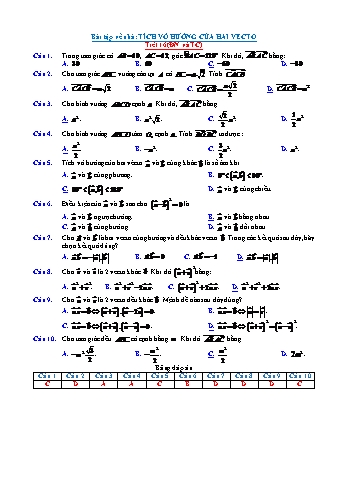 Bài tập về nhà: TÍCH VÔ HƯỚNG CỦA HAI VECTO
Tiết 16(ĐN và TC)
Câu 1. Trong tam giác có AB=10, AC=12, góc BAC=120°. Khi đó, AB.AC bằng:
A. 30 B. 60 C. -60 D. -30
Câu 2. Cho tam giác ABC vuông cân tại A có BC=a√2. Tính CA.CB
A. CA.CB=a√2 B. CA.CB=a C. D. CA.CB=a²
Câu 3. Cho hình vuông ABCD cạnh a. Khi đó, AB.AC bằng
A. a². B. a²√2. C. √2/2 a². D. 1/2 a².
Câu 4. Cho hình vuông ABCD tâm O, cạnh a. Tính ta được:
A. a²/2 B. C. D. a².
Câu 5. Tích vô hướng của hai vectơ a và b cùng khác 0 là số âm khi
A. a và b cùng phương. B. 0°<(a,b)<90°.
C. 90°<(a,b)<180°. D. a và b cùng chiều.
Câu 6. Điều kiện của a và b sao cho (a-b)²=0 là
A. a và b ngược hướng. B. a và b bằng nhau
C. a và b cùng hướng D. a và b đối nhau
Câu 7. Cho a và b là hai vectơ cùng hướng và đều khác vectơ 0. Trong các kết quả sau đây, hãy
chọn kết quả đúng?
A. B. a.b=0 C. a.b=-1 D.
Câu 8. Cho u và v là 2 vectơ khác 0. Khi đó (u+v)² bằng:
A. u²+v². B. C. D. u²+v²+2u.v.
Câu 9. Cho u và v là 2 vectơ đều khác 0. Mệnh đề nào sau đây đúng?
A. B.
C. u.v=0⇔(u+v).(u-v)=0. D. u.v=0⇔(u+v)²=(u-v)².
Câu 10. Cho tam giác đều ABC có cạnh bằng m. Khi đó, AB.AC bằng
A. B. -m²/2. C. m²/2 D. 2m².
Bảng đáp án
Câu 1 Câu 2 Câu 3 Câu 4 Câu 5 Câu 6 Câu 7 Câu 8 Câu 9 Câu 10
C D A A C B D D D C